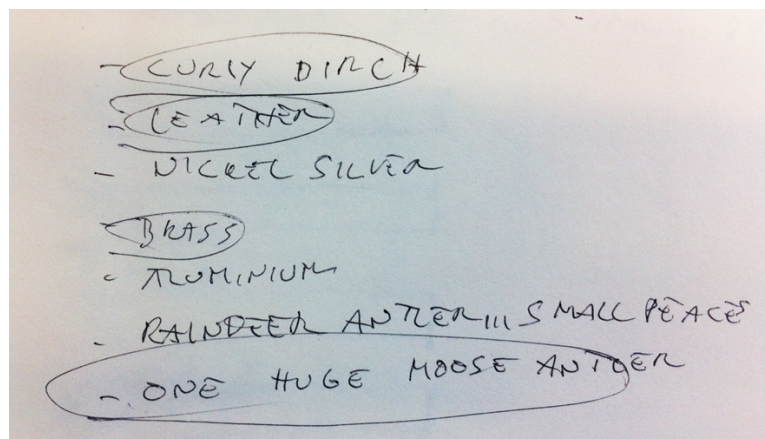 - CURLY BIRCH
- LEATHER
- NICKEL SILVER
- BRASS
- ALUMINIUM
- RAINDEER ANTLER,,, SMALL PEACES
- ONE HUGE MOOSE ANTLER